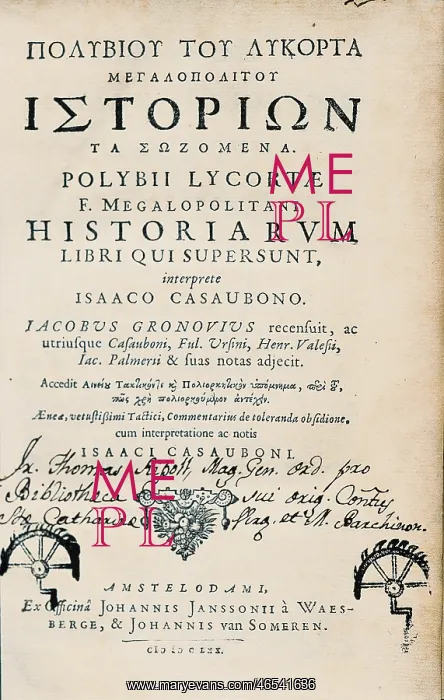 ΠΟΛΥΒΙΟΥ ΤΟΥ ΛΥΚΟΡΤΑ
ΜΕΓΑΛΟΠΟΛΙΤΟΥ
ΙΣΤΟΡΙΩΝ
ΤΑ ΣΩΖΟΜΕΝΑ.
POLYBII LYCORTÆ
F. MEGALOPOLITANI
HISTORIARVM
LIBRI QUI SUPERSUNT,
interprete
ISAACO CASAUBONO.
IACOBUS GRONOVIUS recensuit, ac
utriusque Casauboni, Ful. Ursini, Henr. Valesii,
Iac. Palmerii & suas notas adjecit.
Accedit Αἰνείου Τακτικόν τε κ̀ Πολιορκητικὸν ὑπόμνημα, περὶ τοῦ,
πῶς χρὴ πολιορκούμενον ἀντέχειν.
Æneæ, vetustissimi Tactici, Commentarius de toleranda obsidione,
cum interpretatione ac notis
ISAACI CASAUBONI.
Fr. Thomas Ripoll, Mag. Gen. ord. pro
Bibliotheca sui orig. Contus
Stæ Catharinæ Mag. et M. Barchinon.
ME
PL
ME
PL
AMSTELODAMI,
Ex Officinâ JOHANNIS JANSSONII à WAES-
BERGE, & JOHANNIS van SOMEREN.
CIↃ IↃ C LXX.
www.maryevans.com/46541636